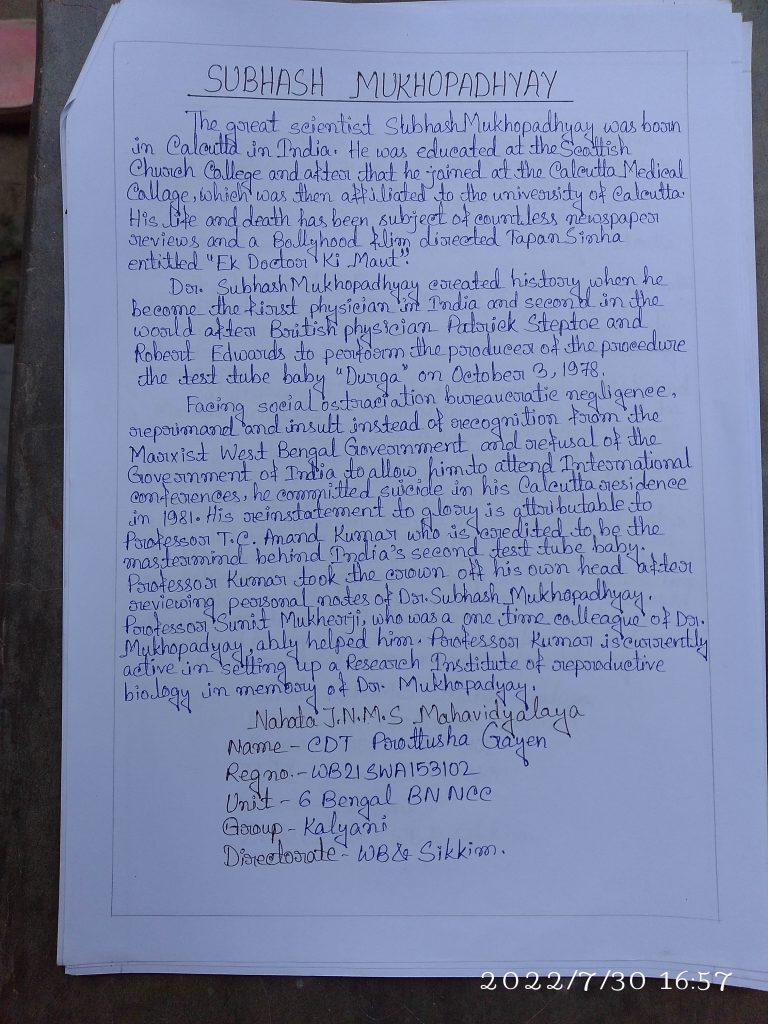 SUBHASH MUKHOPADHYAY
The great scientist Subhash Mukhopadhyay was born
in Calcutta in India. He was educated at the Scottish
Church College and after that he joined at the Calcutta Medical
Callage, which was then affiliated to the university of Calcutta.
His life and death has been subject of countless newspaper
reviews and a Ballyhood flim directed Tapan Sinha
entitled "Ek Doctor Ki Maut".
Dr. Subhash Mukhopadhyay created history when he
become the first physician in India and second in the
world after British physician Patrick Steptoe and
Robert Edwards to perform the producer of the procedure
the test tube baby "Durga" on October 3, 1978.
Facing social ostraciation bureaucratic negligence,
reprimand and insult instead of recognition from the
Marxist West Bengal Government and refusal of the
Government of India to allow him to attend International
conferences, he committed suicide in his Calcutta residence
in 1981. His reinstatement to glory is attributable to
Professor T.C. Anand Kumar who is credited to be the
mastermind behind India's second test tube baby.
Professor Kumar took the crown off his own head after
reviewing personal notes of Dr. Subhash Mukhopadhyay.
Professor Sunit Mukherji, who was a one time colleague of Dr.
Mukhopadyay, ably helped him. Professor Kumar is currently
active in setting up a Research Institute of reproductive
biology in memory of Dr. Mukhopadyay.
Nahata J.N.M.S Mahavidyalaya
Name - CDT Prottusha Gayen
Reg no. - WB21SWA153102
Unit - 6 Bengal BN NCC
Group - Kalyani
Directorate - WB & Sikkim.
2022/7/30 16:57